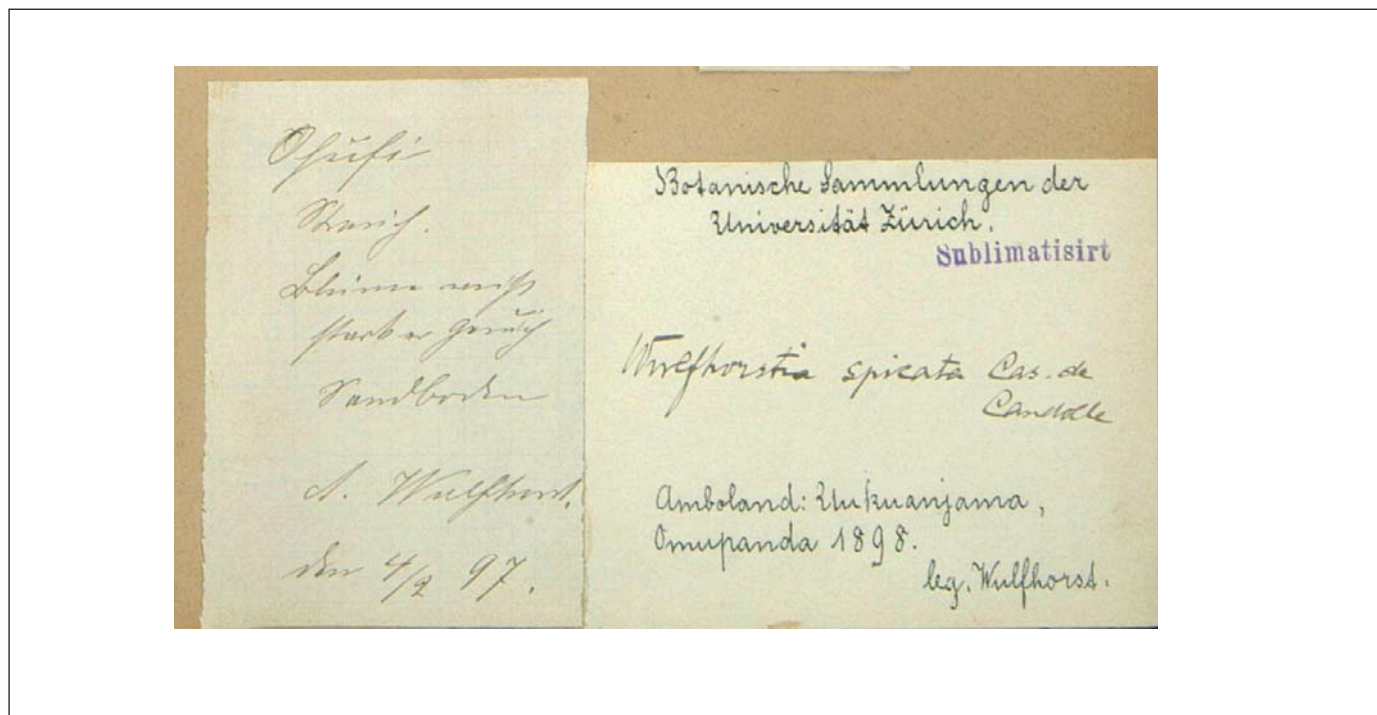 Ohufi
Strauch.
Blume weiß
starker Geruch
Sandboden
A. Wulfhorst.
den 4/2 97.
Botanische Sammlungen der
Universität Zürich.
Sublimatisirt
Wulfhorstia spicata Cas. de
Candolle
Amboland: Uukuanjama,
Omupanda 1898.
leg. Wulfhorst.